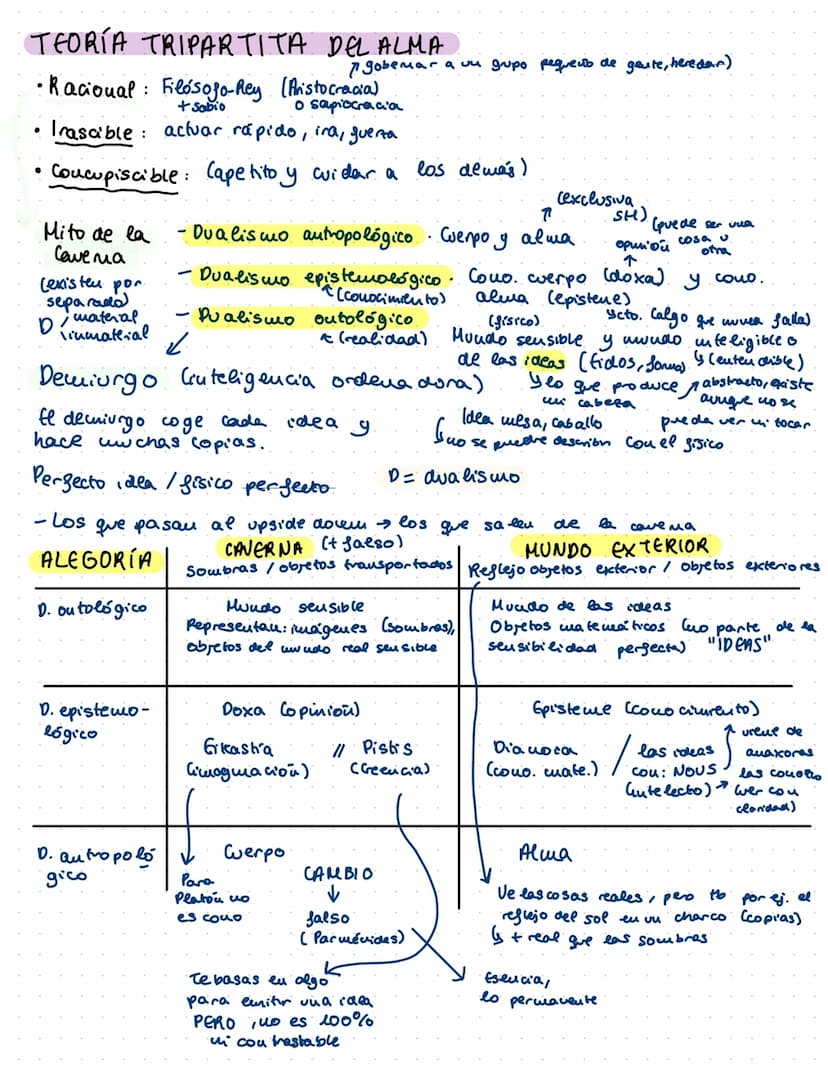 TEORÍA TRIPARTITA DEL ALMA
↗ gobernar a un grupo pequeño de gente, heredar)
• Racional: Filósofo-Rey (Aristocracia)
+ sabio o sapiocracia
• Irascible: actuar rápido, ira, guerra
• Concupiscible: (apetito y cuidar a los demás)
Mito de la Caverna
(existen por separado)
D / material
\ inmaterial
- Dualismo antropológico. Cuerpo y alma
(exclusiva SH)
(puede ser una opinión cosa u otra
- Dualismo epistemológico. Cono. cuerpo (doxa) y cono.
(conocimiento) alma (episteme)
↳cto. (algo que nunca falla)
- Dualismo ontológico (físico)
(realidad) Mundo sensible y mundo inteligible o
de las ideas (Eidos, forma) ↳ (entendible)
↳ lo que produce mi cabeza
↗ abstracto, existe aunque no se pueda ver ni tocar
Demiurgo (inteligencia ordenadora)
El demiurgo coge cada idea y
hace muchas copias.
Idea mesa, caballo
↳ no se puede describir con el físico
Perfecto idea / físico perfecto
D = dualismo
- Los que pasan al upside down → los que salen de la caverna
ALEGORÍA
CAVERNA (+ falso)
Sombras / objetos transportados
MUNDO EXTERIOR
Reflejo objetos exterior / objetos exteriores
D. ontológico
Mundo sensible
Representan: imágenes (sombras),
objetos del mundo real sensible
Mundo de las ideas
Objetos matemáticos (no parte de la
sensibilidad perfecta) "IDEAS"
D. epistemo-
lógico
Doxa (opinión)
Eikasía // Pistis
(imaginación) (creencia)
Episteme (conocimiento)
Dianoia / las ideas
(cono. mate.) con: NOUS
(intelecto) → (ver con claridad)
↗ viene de anaxoras
las conozco
D. antropoló
gico
Cuerpo
Para
Platón no
es cono
CAMBIO
↓
falso
(Parménides)
Alma
Ve las cosas reales, pero tb por ej. el
reflejo del sol en un charco (copias)
↳ + real que las sombras
Te basas en algo
para emitir una idea
PERO, no es 100%
ni contrastable
Esencia,
lo permanente